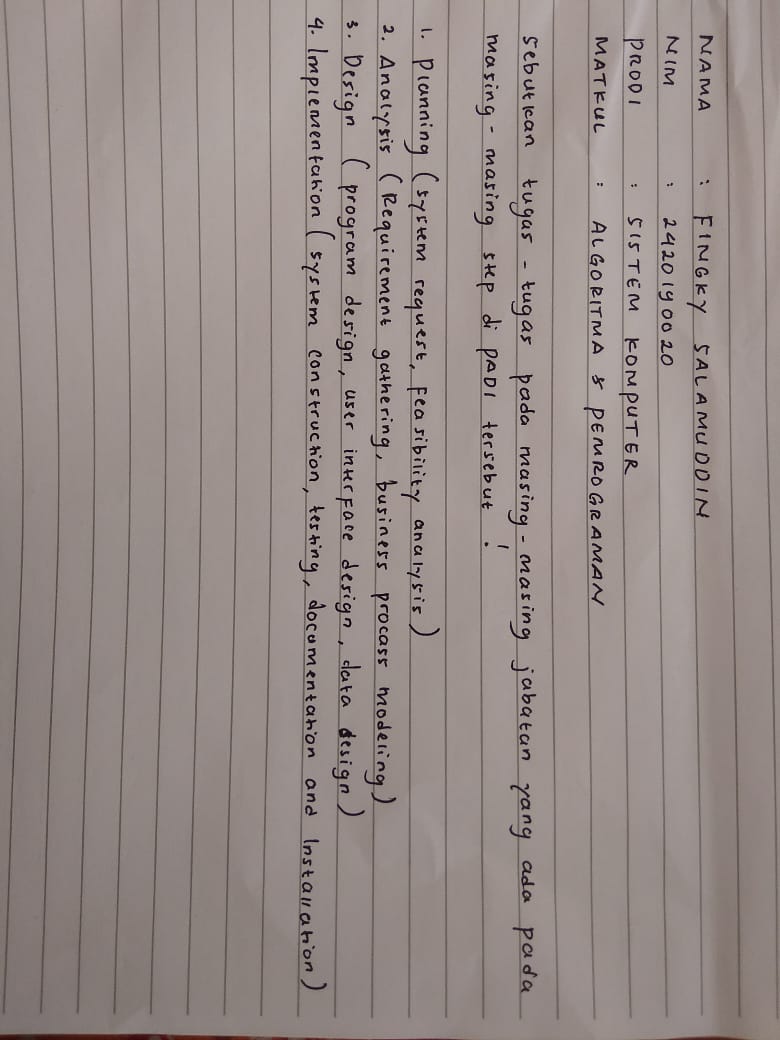 NAMA : FINGKY SALAMUDDIN
NIM : 2420190020
PRODI : SISTEM KOMPUTER
MATKUL : ALGORITMA & PEMROGRAMAN
Sebutkan tugas-tugas pada masing-masing jabatan yang ada pada
masing-masing step di PADI tersebut !
1. Planning (System request, Feasibility analysis)
2. Analysis (Requirement gathering, business procass modeling)
3. Design (program design, user interface design, data design)
4. Implementation (system construction, testing, documentation and Installation)